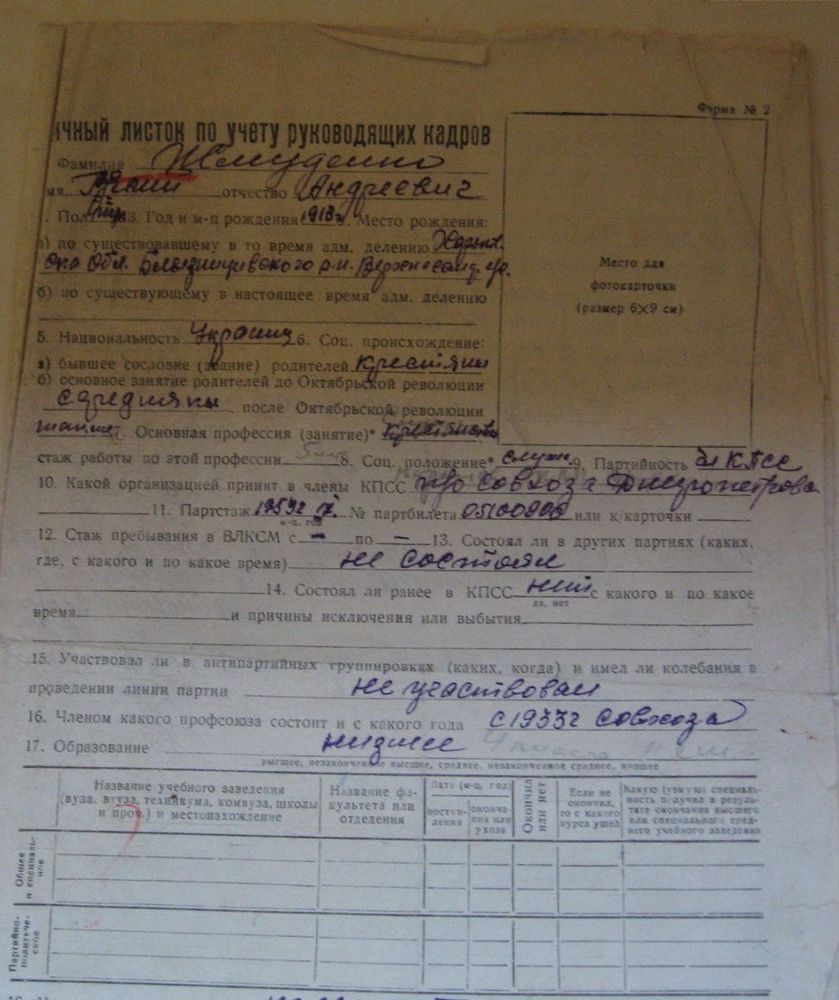 Форма № 2
ичный листок по учету руководящих кадров
Фамилия Жмуденко
мя отчество Андреевич
Пол 3. Год и м-ц рождения 1913г. Место рождения:
а) по существовавшему в то время адм. делению Харьк.
б) по существующему в настоящее время адм. делению
Место для
фотокарточки
(размер 6×9 см)
5. Национальность Украинц 6. Соц. происхождение:
а) бывшее сословие (звание) родителей крестяны
б) основное занятие родителей до Октябрьской революции
средняки после Октябрьской революции
Основная профессия (занятие)*
стаж работы по этой профессии 8. Соц. положение* служ. 9. Партийность чл КПСС
10. Какой организацией принят в члены КПСС п/о совхоза Днепропетрова
11. Партстаж № партбилета или к/карточки
м-ц, год
12. Стаж пребывания в ВЛКСМ с – по – 13. Состоял ли в других партиях (каких,
где, с какого и по какое время) не состоял
14. Состоял ли ранее в КПСС нет с какого и по какое
да, нет
время и причины исключения или выбытия
15. Участвовал ли в антипартийных группировках (каких, когда) и имел ли колебания в
проведении линии партии не участвовал
16. Членом какого профсоюза состоит и с какого года с 1933г совхоза
17. Образование низшее
высшее, незаконченное высшее, среднее, незаконченное среднее, низшее
Название учебного заведения
(вуза, втуза, техникума, комвуза, школы
и проч.) и местонахождение
Название фа-
культета или
отделения
Дата (м-ц, год)
поступ-
ления
оконча-
ния или
ухода
Окончил
или нет
Если не
окончил,
то с какого
курса ушел
Какую (узкую) специаль-
ность получил в резуль-
тате окончания высшего
или специального сред-
него учебного заведения
Общее
и специаль-
ное
Партийно-
политиче-
ское